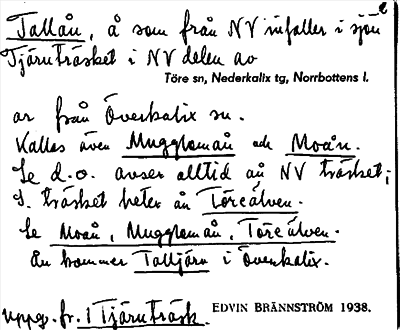 Tallån, å som från NV infaller i sjön
Tjärnträsket i NV delen av
Töre sn, Nederkalix tg, Norrbottens l.
ar från Överkalix sn.
Kallas även Mugglamån och Moån.
Se d.o. avser alltid ån NV träsket;
S. träsket heter ån Töreälven.
Se Moån, Mugglamån, Töreälven.
Ån kommer Talltjärn i Överkalix.
Uppg. fr. 1 Tjärnträsk.
EDVIN BRÄNNSTRÖM 1938.